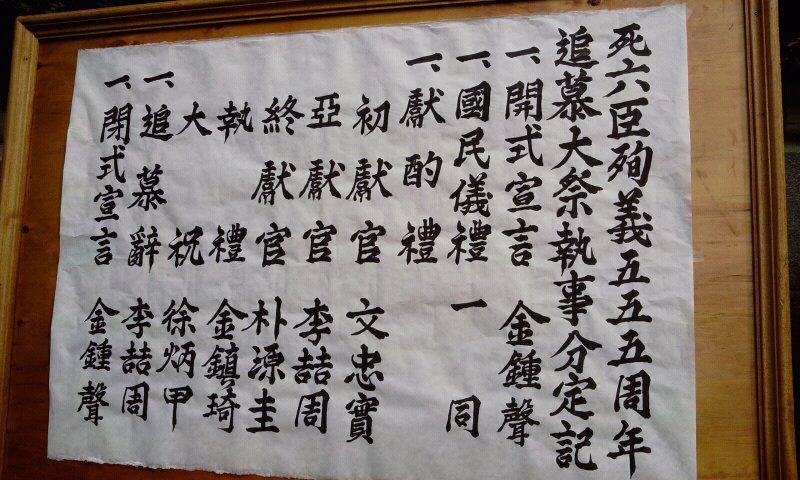 死六臣殉義五五五周年
追慕大祭執事分定記
一、開式宣言 金鍾聲
一、國民儀禮 一同
一、獻酌禮
初獻官 文忠實
亞獻官 李喆周
終獻官 朴源圭
執禮 金鎮琦
大祝 徐炳甲
一、追慕辭 李喆周
一、閉式宣言 金鍾聲